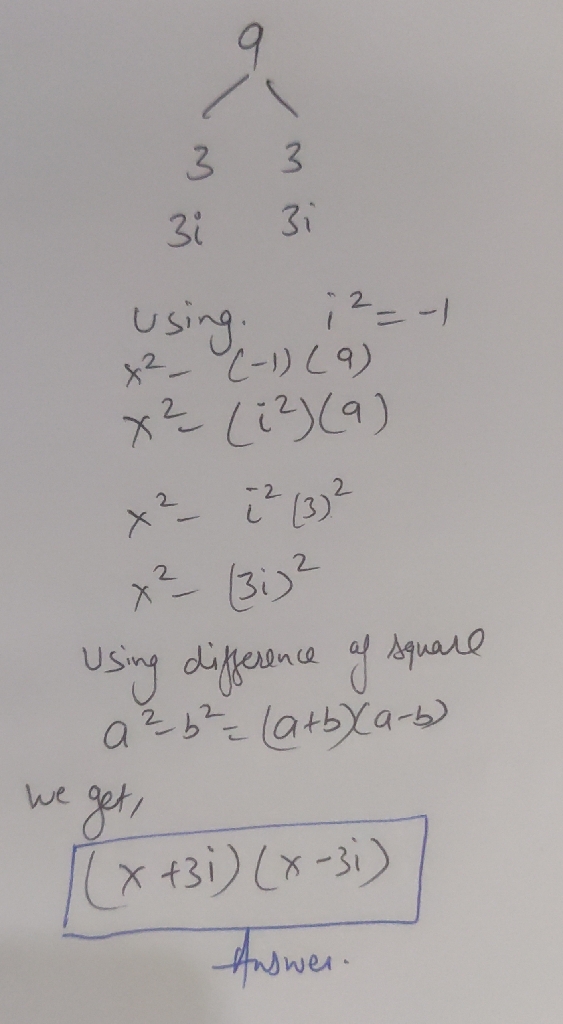 9
3 3
3i 3i
Using. i² = -1
x² - (-1) (9)
x² - (i²)(9)
x² - i² (3)²
x² - (3i)²
Using difference of square
a² - b² = (a+b)(a-b)
We get,
(x +3i) (x -3i)
Answer.